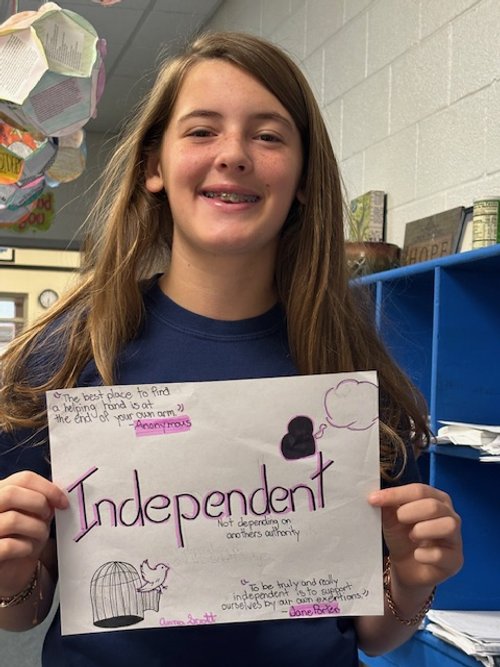 "The best place to find
a helping hand is at
the end of your own arm."
-Anonymous
Independent
Not depending on
anothers authority
"To be truly and really
independent is to support
ourselves by our own exertions."
-Jane Porter
HOPE